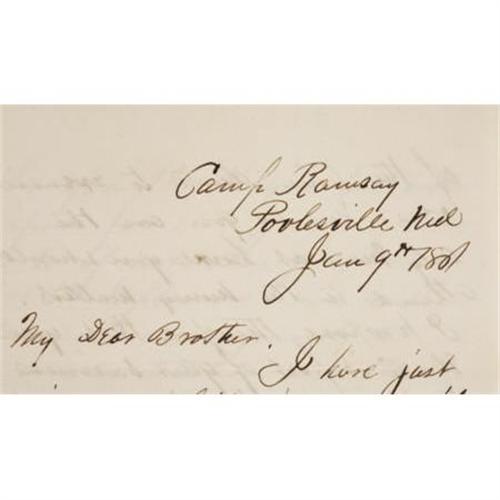 Camp Ramsay
Poolesville Md
Jan 9th 1861
My Dear Brother.
I have just